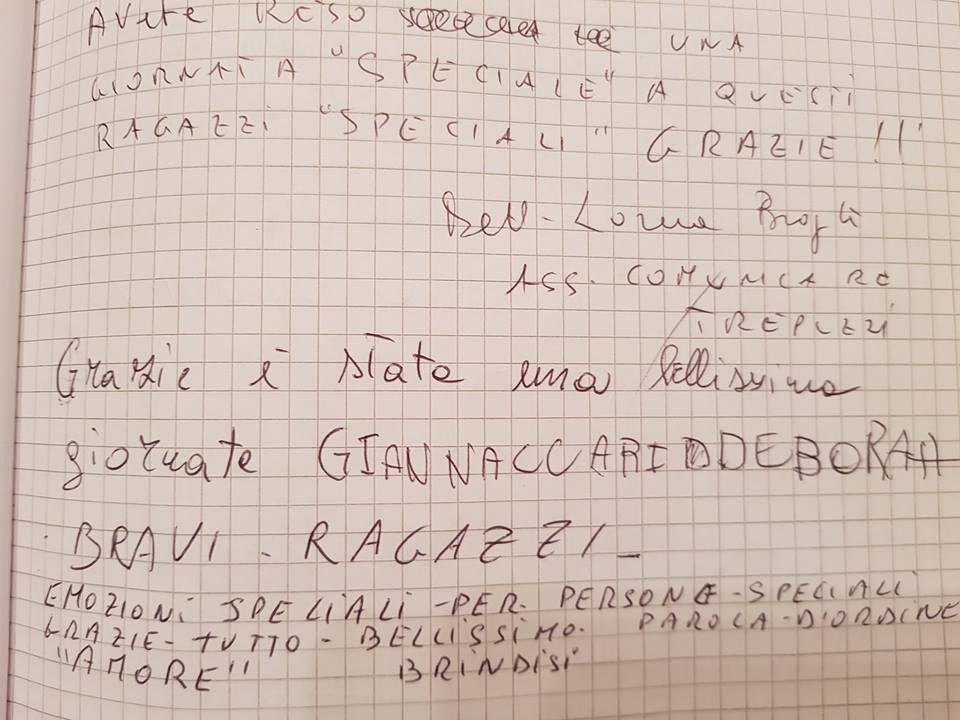 AVETE RESO UNA
GIORNATA "SPECIALE" A QUESTI
RAGAZZI "SPECIALI" GRAZIE !!
ASS. COMUNICARE
TREPUZZI
Grazie è stata una bellissima
giornate GIANNACCARI DDEBORAH
BRAVI - RAGAZZI -
EMOZIONI SPECIALI - PER. PERSONE - SPECIALI
GRAZIE - TUTTO - BELLISSIMO. PAROLA - D'ORDINE
"AMORE" BRINDISI